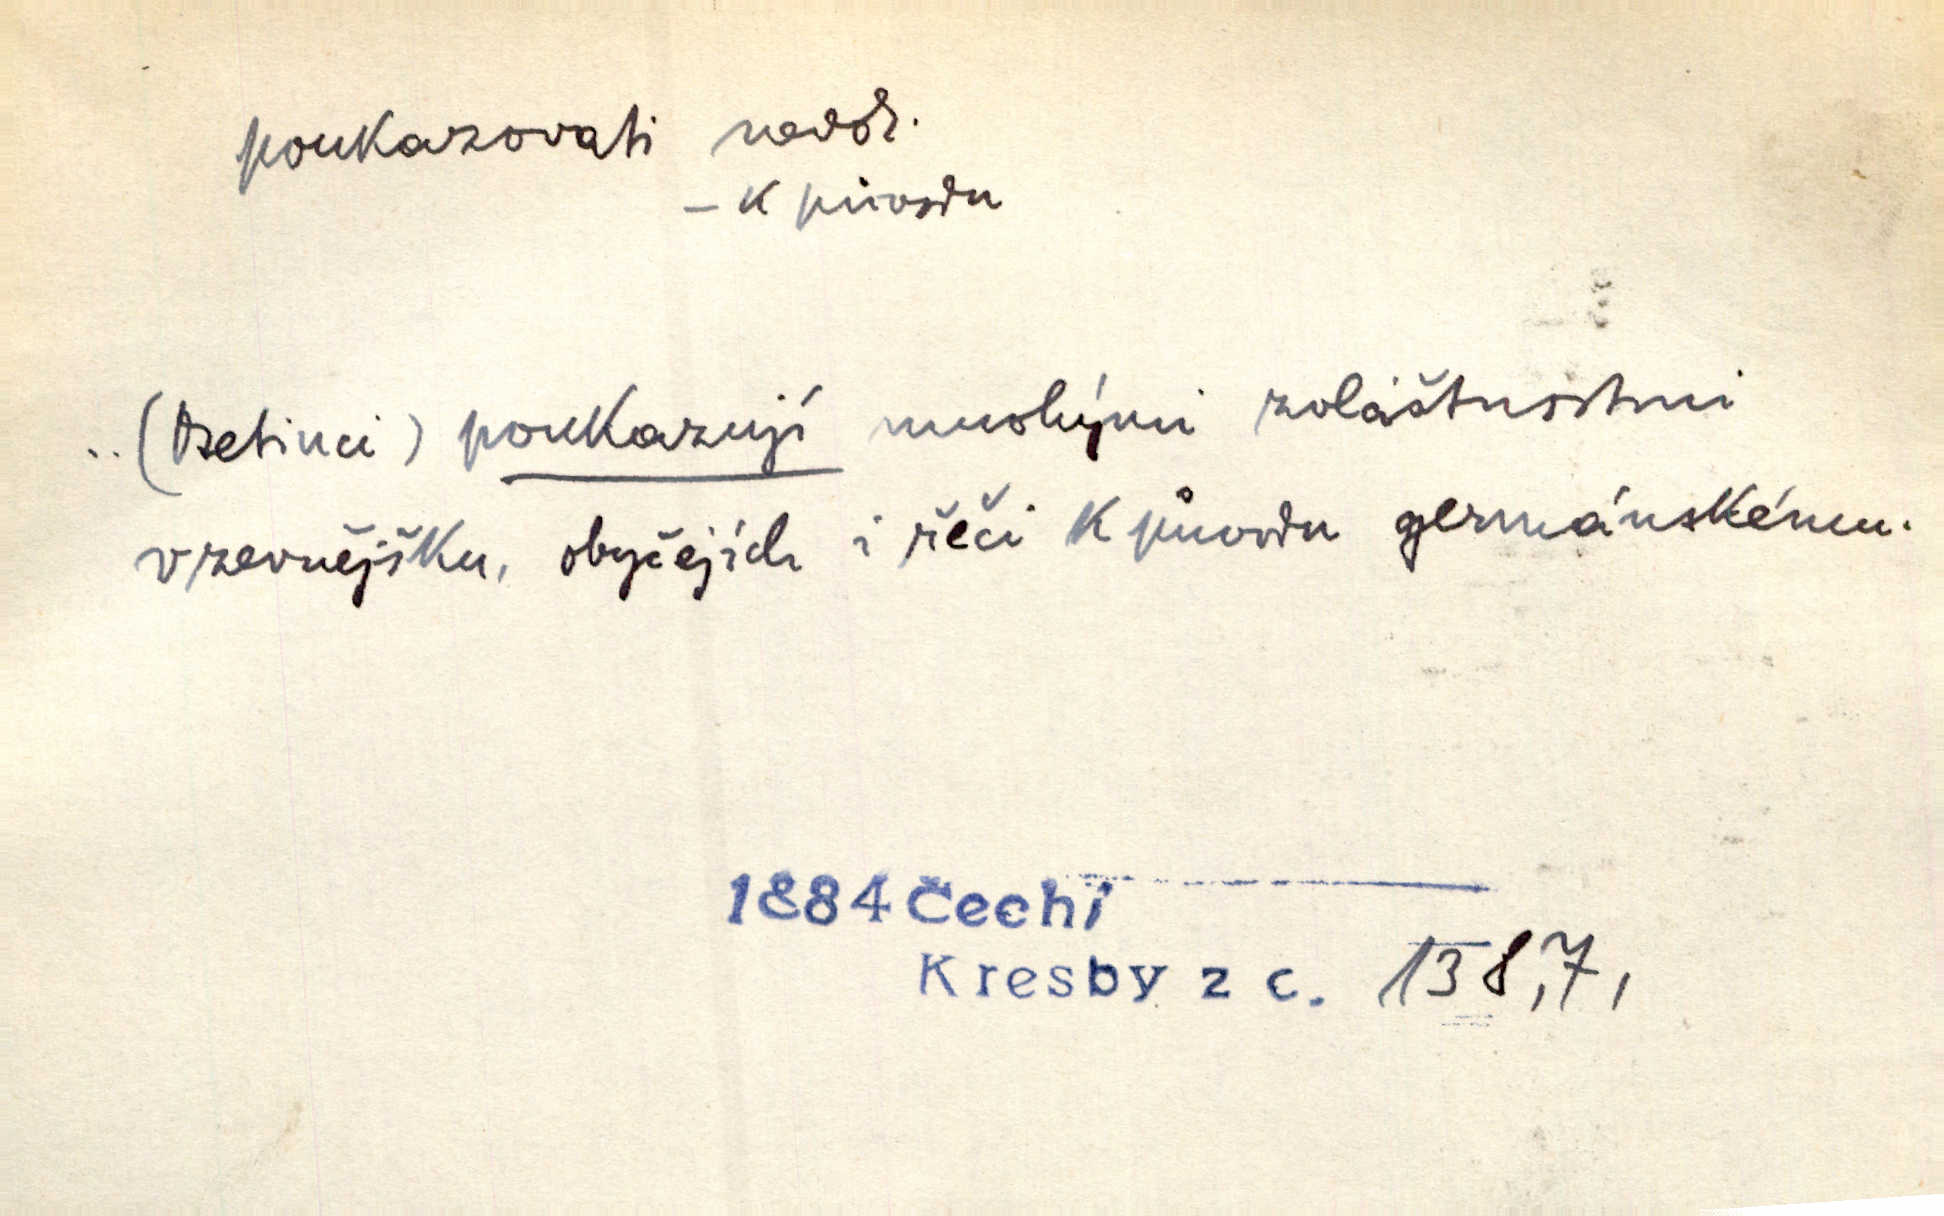 poukazovati nedok.
– k původu
..(Osetinci) poukazují mnohými zvláštnostmi
v zevnějšku, obyčejích i řeči k původu germánskému.
1884 Čech
Kresby z c. 138,7,